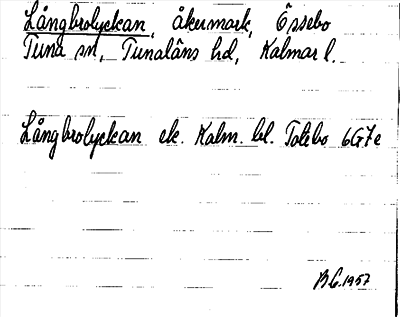 Långbrolyckan, åkermark, Össebo
Tuna sn, Tunaläns hd, Kalmar l.
Långbrolyckan ek. Kalm. bl. Totebo 6G7e
B.C. 1957